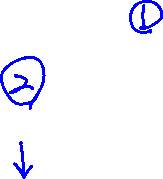 ①
②
↓